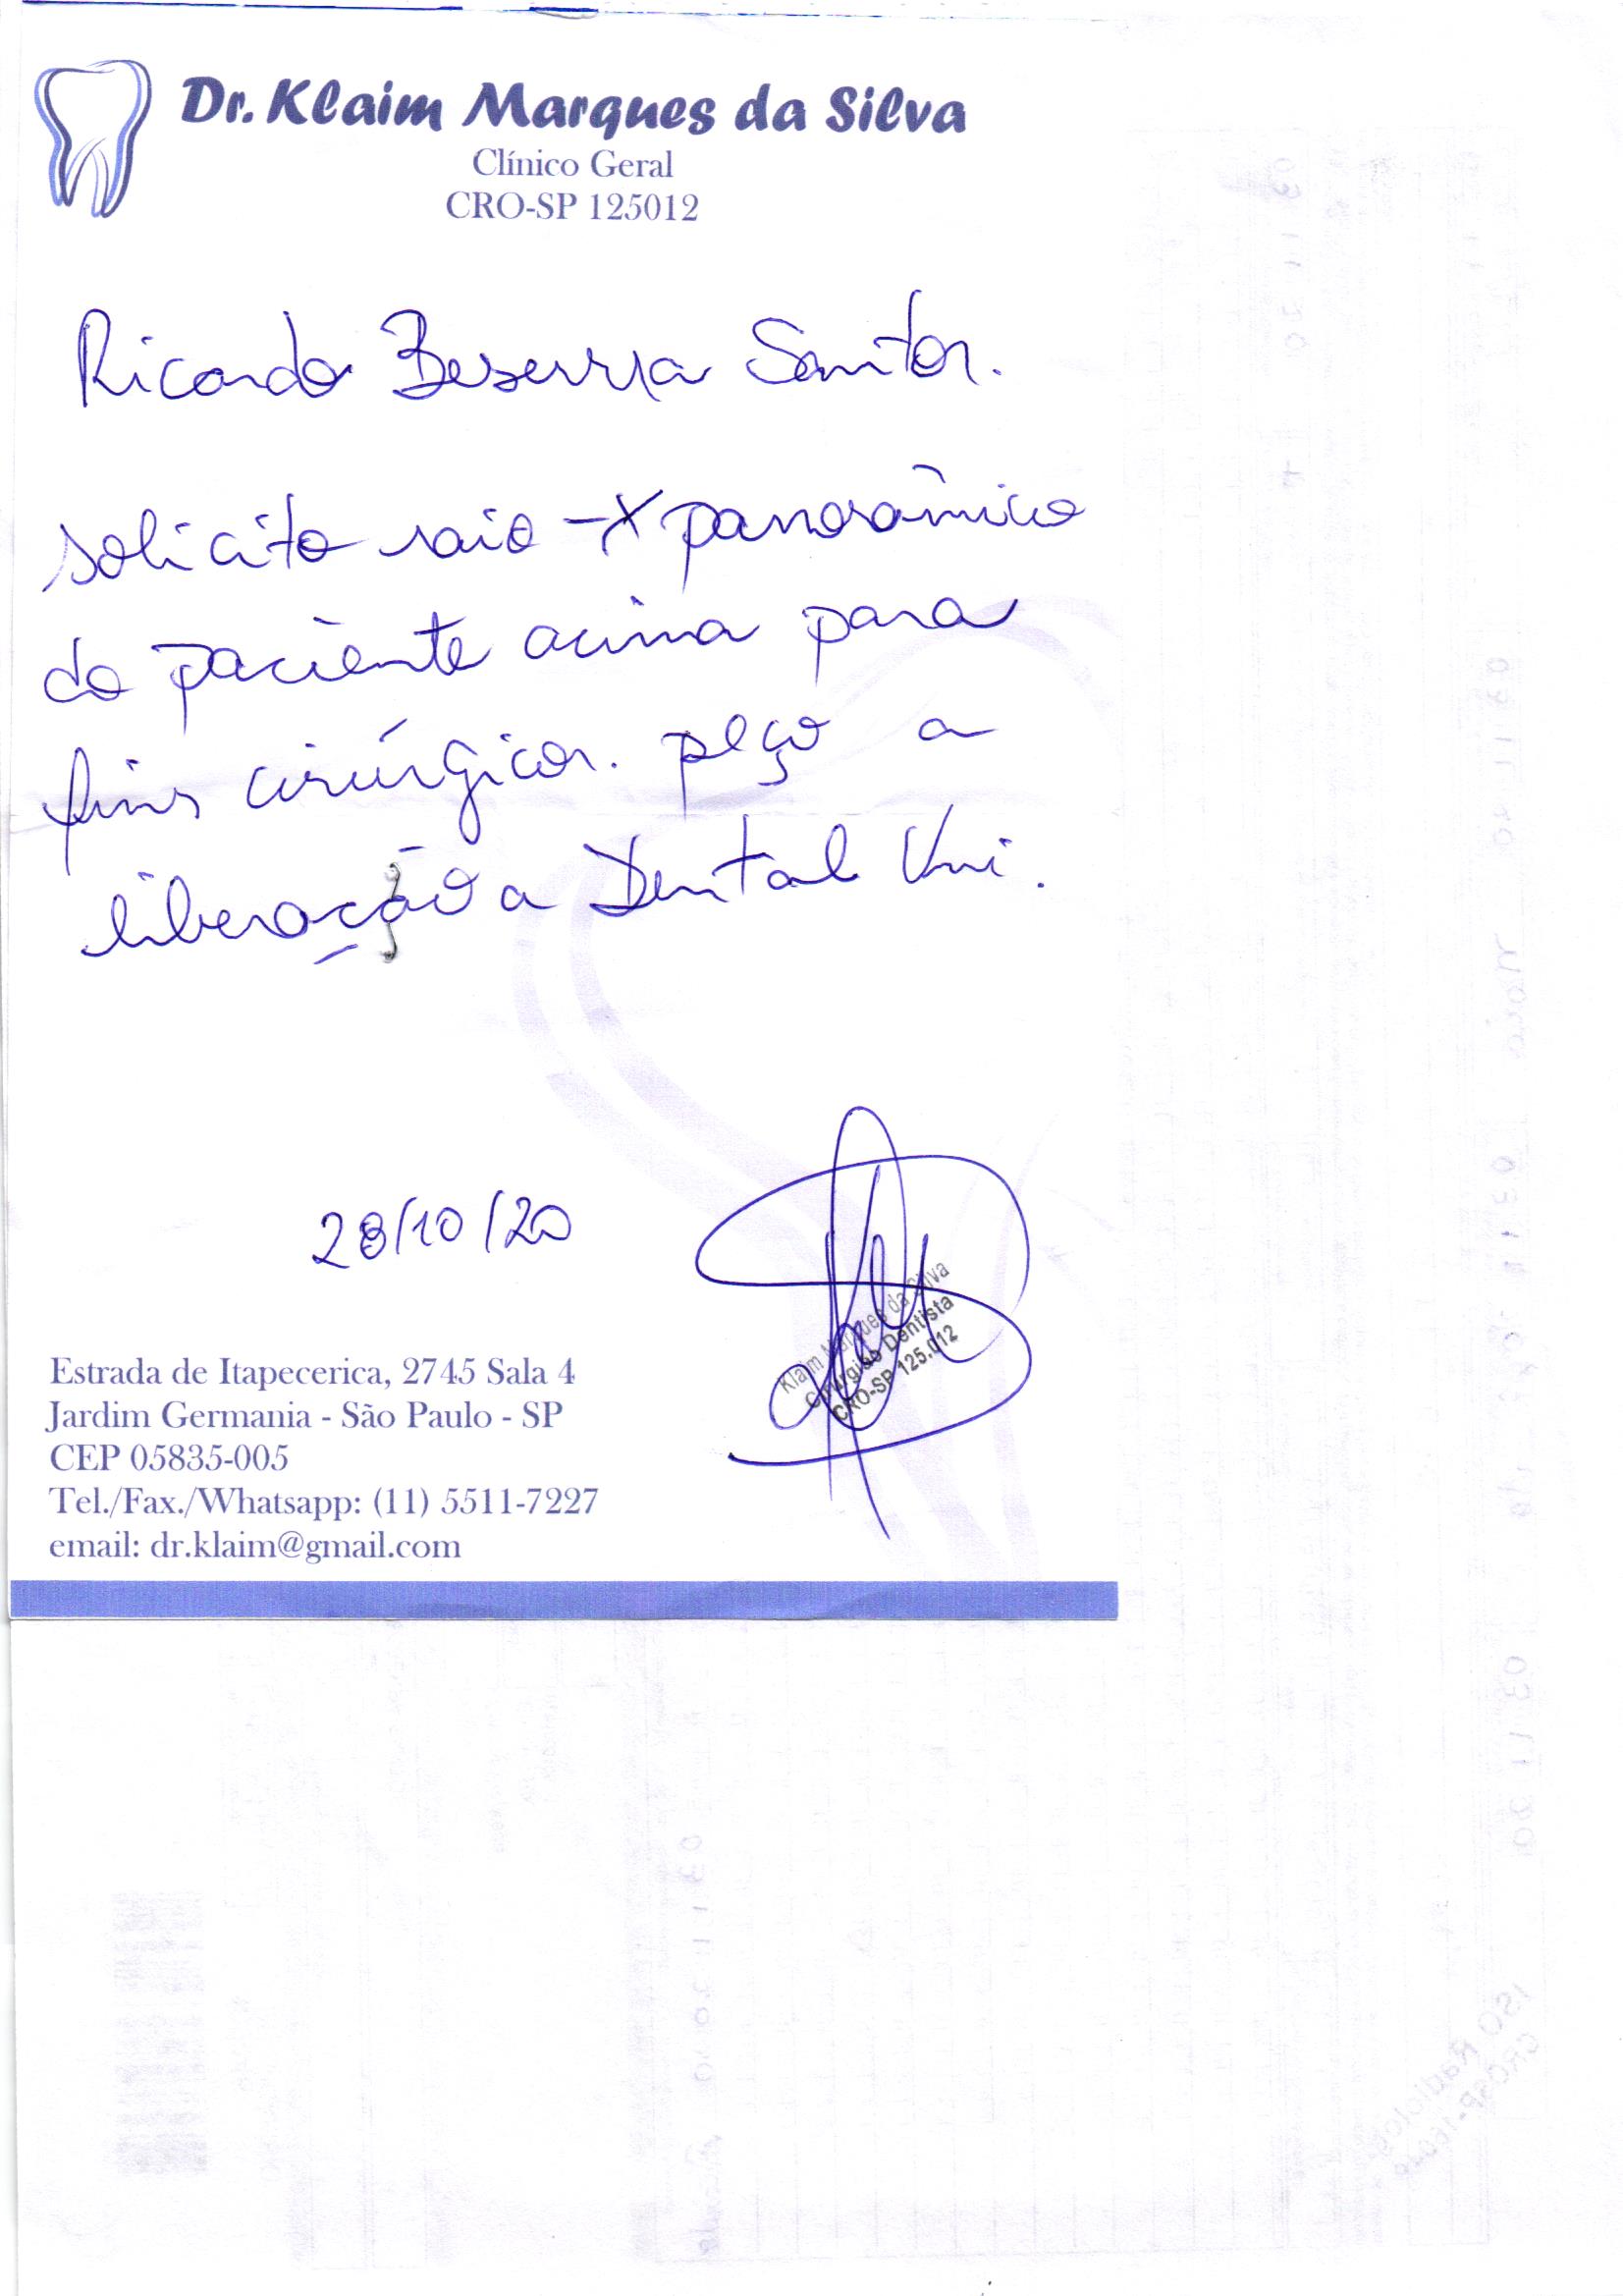 Dr. Klaim Marques da Silva
Clínico Geral
CRO-SP 125012
Ricardo Beserra Santos.
solicito raio-X panorâmico
do paciente acima para
fins cirúrgicos. peço a
liberação a Dental Uni.
28/10/20
Klaim Marques da Silva
Cirurgião Dentista
CRO-SP 125.012
Estrada de Itapecerica, 2745 Sala 4
Jardim Germania - São Paulo - SP
CEP 05835-005
Tel./Fax./Whatsapp: (11) 5511-7227
email: dr.klaim@gmail.com